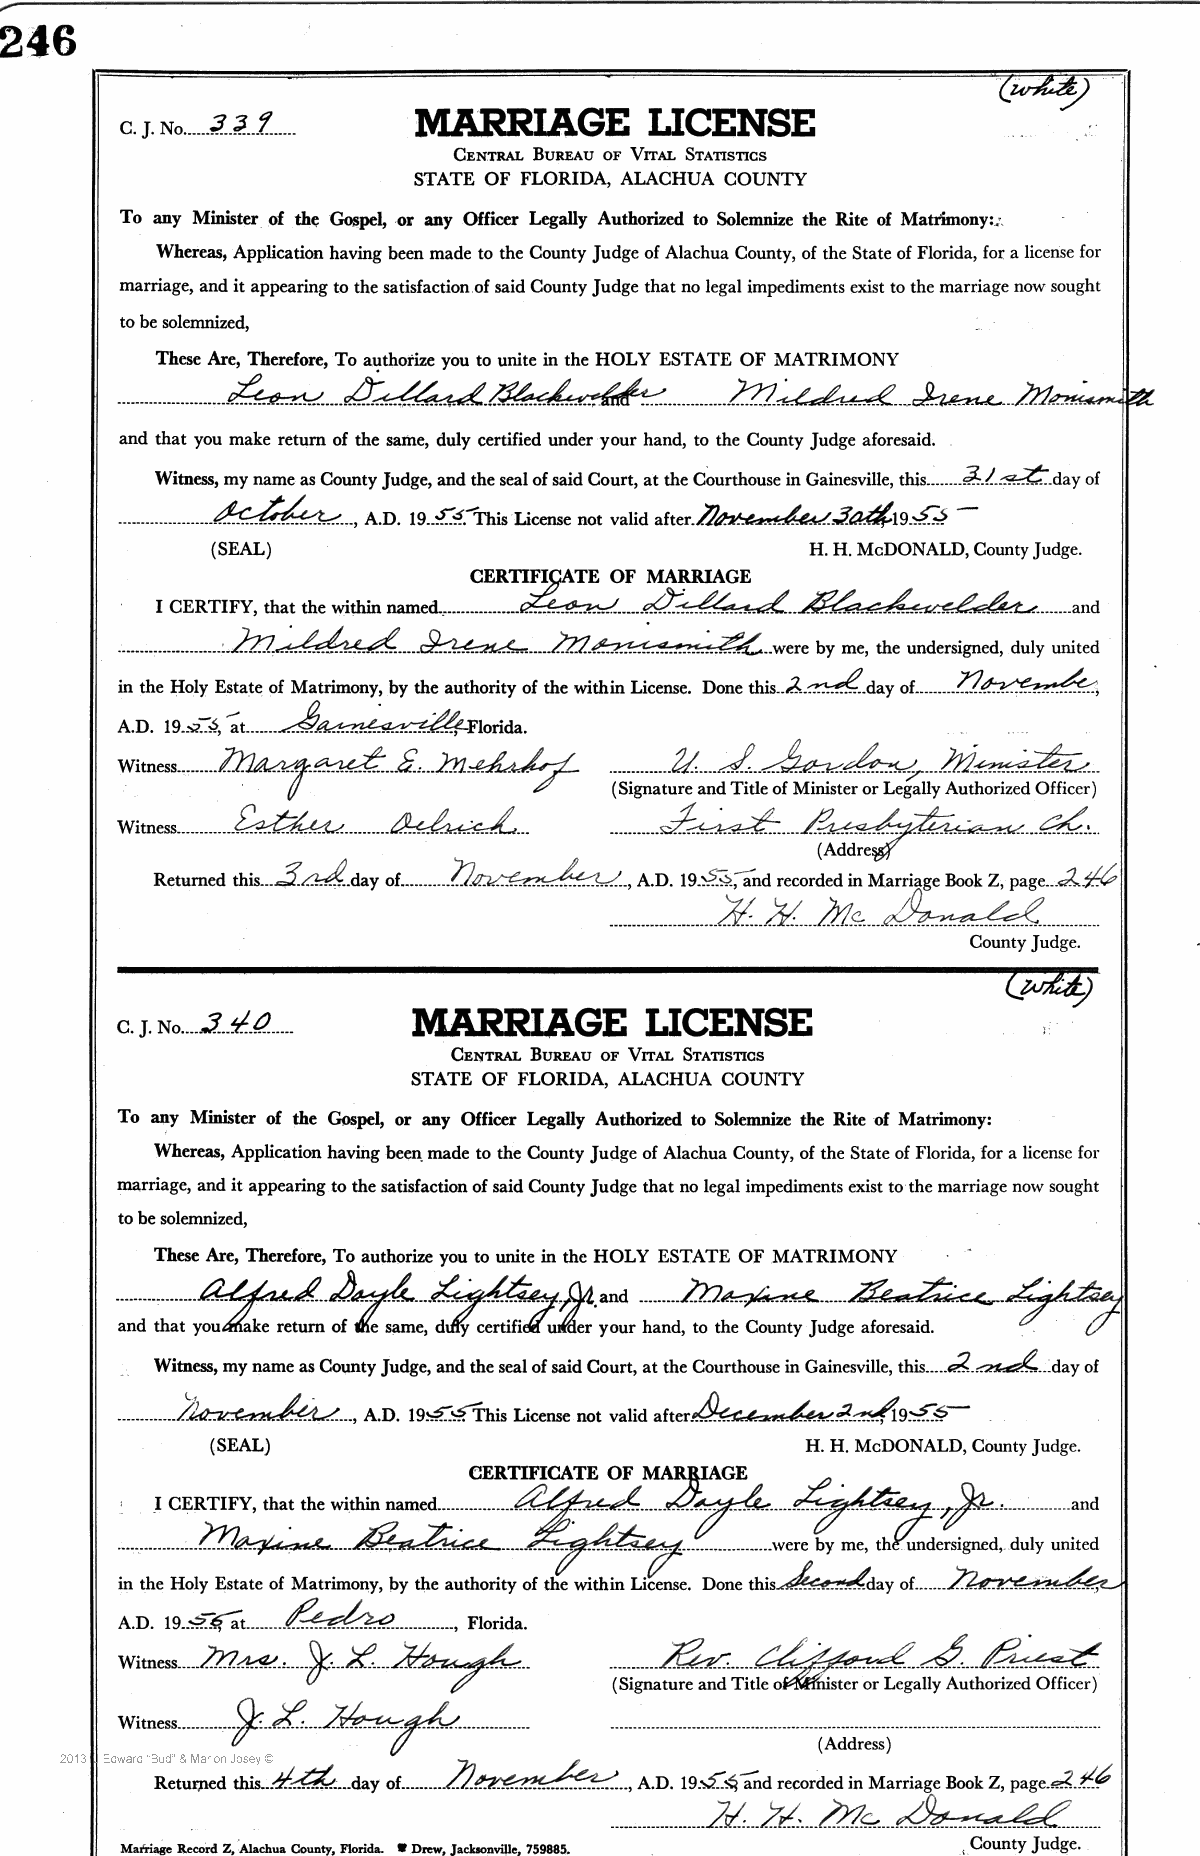 246
(white)
C. J. No. 339
MARRIAGE LICENSE
CENTRAL BUREAU OF VITAL STATISTICS
STATE OF FLORIDA, ALACHUA COUNTY
To any Minister of the Gospel, or any Officer Legally Authorized to Solemnize the Rite of Matrimony:
Whereas, Application having been made to the County Judge of Alachua County, of the State of Florida, for a license for
marriage, and it appearing to the satisfaction of said County Judge that no legal impediments exist to the marriage now sought
to be solemnized,
These Are, Therefore, To authorize you to unite in the HOLY ESTATE OF MATRIMONY
Leon Dillard Blackwelder and Mildred Irene Monismith
and that you make return of the same, duly certified under your hand, to the County Judge aforesaid.
Witness, my name as County Judge, and the seal of said Court, at the Courthouse in Gainesville, this 31st day of
October, A.D. 1955. This License not valid after November 30th, 1955
(SEAL) H. H. McDONALD, County Judge.
CERTIFICATE OF MARRIAGE
I CERTIFY, that the within named Leon Dillard Blackwelder and
Mildred Irene Monismith were by me, the undersigned, duly united
in the Holy Estate of Matrimony, by the authority of the within License. Done this 2nd day of Novembe,
A.D. 1955, at Gainesville, Florida.
Witness Margaret E. Mehrhof U. S. Gordon, Minister
(Signature and Title of Minister or Legally Authorized Officer)
Witness Esther Oelrich First Presbyterian Ch.
(Address)
Returned this 3rd day of November, A.D. 1955, and recorded in Marriage Book Z, page 246
H. H. McDonald
County Judge.
(white)
C. J. No. 340
MARRIAGE LICENSE
CENTRAL BUREAU OF VITAL STATISTICS
STATE OF FLORIDA, ALACHUA COUNTY
To any Minister of the Gospel, or any Officer Legally Authorized to Solemnize the Rite of Matrimony:
Whereas, Application having been made to the County Judge of Alachua County, of the State of Florida, for a license for
marriage, and it appearing to the satisfaction of said County Judge that no legal impediments exist to the marriage now sought
to be solemnized,
These Are, Therefore, To authorize you to unite in the HOLY ESTATE OF MATRIMONY
Alfred Doyle Lightsey, Jr. and Maxine Beatrice Lightsey
and that you make return of the same, duly certified under your hand, to the County Judge aforesaid.
Witness, my name as County Judge, and the seal of said Court, at the Courthouse in Gainesville, this 2nd day of
November, A.D. 1955 This License not valid after December 2nd, 1955
(SEAL) H. H. McDONALD, County Judge.
CERTIFICATE OF MARRIAGE
I CERTIFY, that the within named Alfred Doyle Lightsey, Jr. and
Maxine Beatrice Lightsey were by me, the undersigned, duly united
in the Holy Estate of Matrimony, by the authority of the within License. Done this Second day of November,
A.D. 1955, at Pedro, Florida.
Witness Mrs. J. L. Hough Rev. Clifford G. Priest
(Signature and Title of Minister or Legally Authorized Officer)
Witness J. L. Hough
(Address)
2013 Edward "Bud" & Marion Josey ©
Returned this 4th day of November, A.D. 1955, and recorded in Marriage Book Z, page 246
H. H. McDonald
County Judge.
Marriage Record Z, Alachua County, Florida. Drew, Jacksonville, 759885.